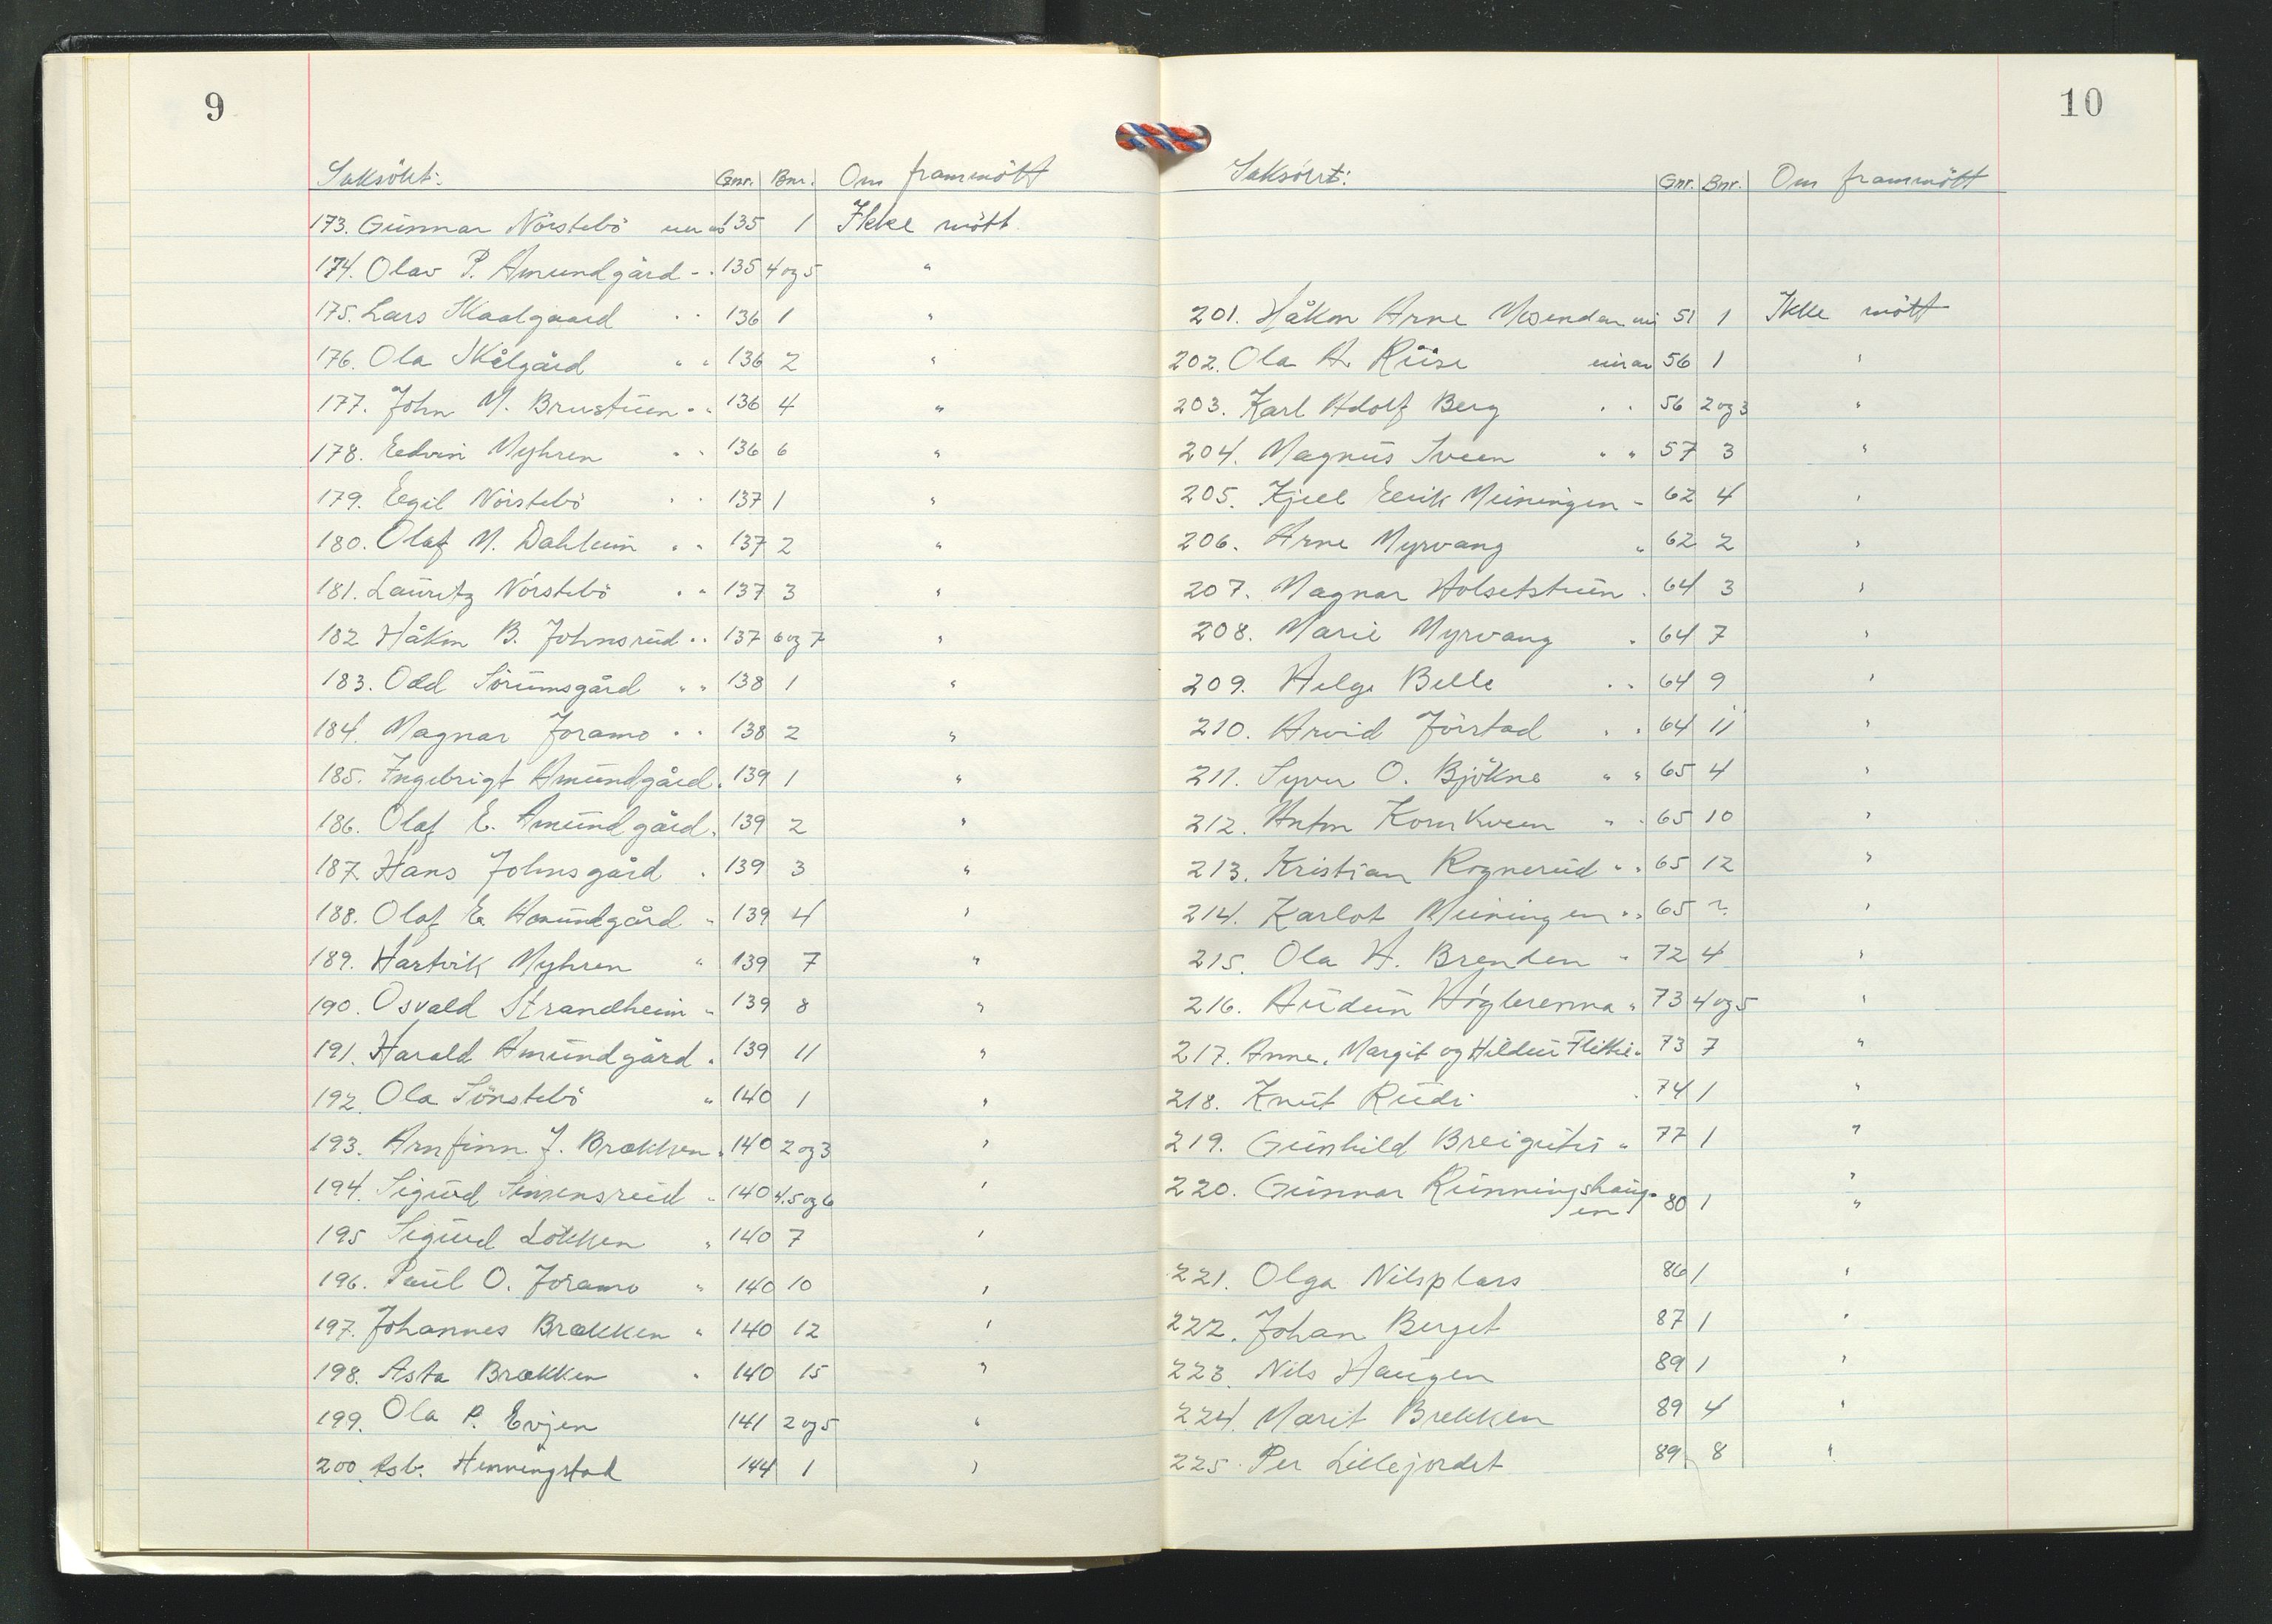 9
Saksökt: Gnr. Bnr. Om frammött
173. Gunnar Nörstebö 135 1 Ikke mött
174. Olav P. Amundgård - . 135 4 og 5 "
175. Lars Skaalgaard . . 136 1 "
176. Ola Skålgård " " 136 2 "
177. John M. Brustuen " " 136 4 "
178. Edvin Myhren " " 136 6 "
179. Egil Nörstebö " " 137 1 "
180. Olaf M. Dahlum " " 137 2 "
181. Lauritz Nörstebö " " 137 3 "
182 Håkon B. Johnsrud " " 137 6 og 7 "
183. Odd Sörumsgård " " 138 1 "
184. Magnar Joramo " " 138 2 "
185. Ingebrigt Amundgård " 139 1 "
186. Olaf E. Amundgård " 139 2 "
187. Hans Johnsgård " 139 3 "
188. Olaf E. Amundgård " 139 4 "
189. Hartvik Myhren " 139 7 "
190. Osvald Strandheim " 139 8 "
191. Harald Amundgård " 139 11 "
192. Ola Sönstebö " 140 1 "
193. Arnfinn J. Brækken " 140 2 og 3 "
194. Sigurd Simensrud " 140 4.5 og 6 "
195 Sigurd Lökken " 140 7 "
196. Paul O. Joramo " 140 10 "
197. Johannes Brækken " 140 12 "
198. Asta Brækken " 140 15 "
199. Ola P. Evjen 141 2 og 5 "
200. Asb. Henningstad 144 1 "
10
Saksökt: Gnr. Bnr. Om frammött
201. Håkon Arne Mosenden 51 1 Ikke mött
202. Ola A. Ruse 56 1 "
203. Karl Adolf Berg " " 56 2 og 3 "
204. Magnus Sveen " " 57 3 "
205. Kjell Eirik Meiningen " 62 4 "
206. Arne Myrvang " 62 2 "
207. Magnar Holsetstuen " 64 3 "
208. Marie Myrvang " 64 7 "
209. Helge Belle " " 64 9 "
210. Arvid Jörstad " " 64 11 "
211. Syver O. Bjökne " " 65 4 "
212. Anton Kornkveen " " 65 10 "
213. Kristian Rognerud " " 65 12 "
214. Karlot Meiningen " " 65 ? "
215. Ola H. Brenden " 72 4 "
216. Audun Högbrenna " 73 4 og 5 "
217. Anne, Margit og Hildur Flittie " 73 7 "
218. Knut Rudi " 74 1 "
219. Gunhild Breigutu " 77 1 "
220. Gunnar Runningshaug- "
en 80 1 "
221. Olga Nilsplass 86 1 "
222. Johan Berget 87 1 "
223. Nils Haugen 89 1 "
224. Marit Brekken 89 4 "
225. Per Lillejordet 89 8 "